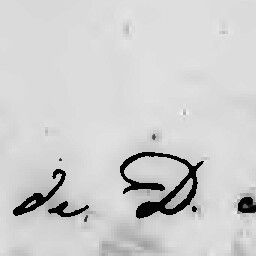 de D.